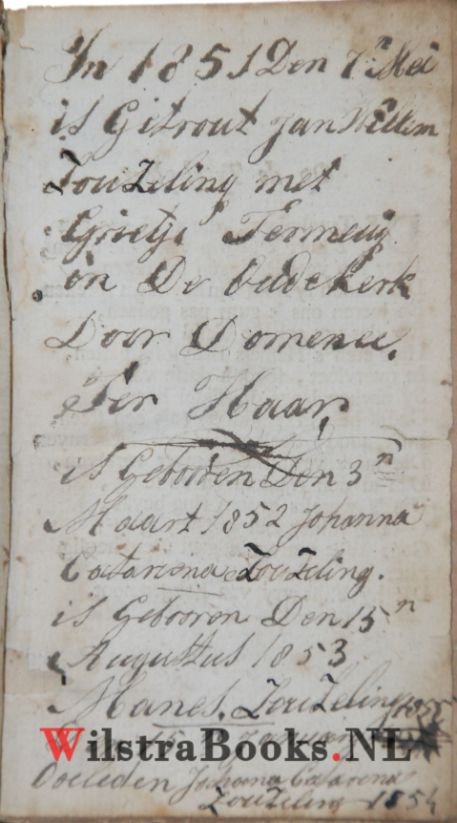 In 1851 Den 7n Mei
is Getrout Jan Willem
Zouteling met
Grietje Termeuj
in De Oude kerk
Door Domenee.
Ter Haar
is Geboren Den 3n
Maart 1852 Johanna
Catarena Zouteling.
is Gebooren Den 15n
Augustus 1853
Manes. Zouteling
WilstraBooks.NL
Overleden Johanna Catarena
Zouteling 1854